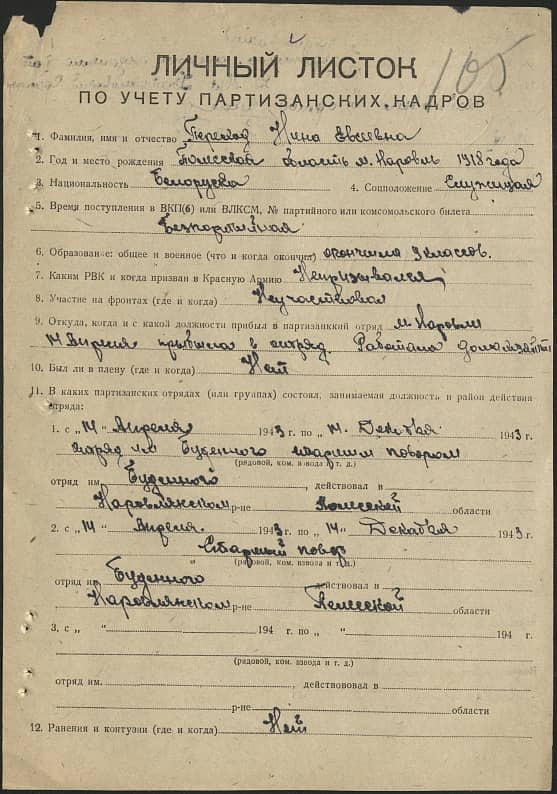 105
ЛИЧНЫЙ ЛИСТОК
ПО УЧЕТУ ПАРТИЗАНСКИХ КАДРОВ
1. Фамилия, имя и отчество Переход Нина Евсеевна
2. Год и место рождения Полесская область м. Наровль 1918 года
3. Национальность Белоруска 4. Соцположение Служащая
5. Время поступления в ВКП(б) или ВЛКСМ, № партийного или комсомольского билета
Безпортийная
6. Образование: общее и военное (что и когда окончил) окончила 9 классов.
7. Каким РВК и когда призван в Красную Армию Непризывался
8. Участие на фронтах (где и когда) Неучаствовал
9. Откуда, когда и с какой должности прибыл в партизанкий отряд м. Наровль
14 Апреля прывыла в отряд. Работала
10. Был ли в плену (где и когда) Нет
11. В каких партизанских отрядах (или группах) состоял, занимаемая должность и район действия
отряда:
1. с „14“ Апреля 1943 г. по „14. Декабря 1943 г.
отряд им Буденного поваром
(рядовой, ком. взвода и т. д.)
отряд им. Буденного, действовал в
Наровлянском р-не Полесской области
2. с „14“ Апреля. 1943 г. по „14“ Декабря 1943 г.
Старшый повор
(рядовой, ком. взвода и т. п.)
отряд им. Буденного действовал в
Наровлянском р-не Полесской области
3. с „ “ 194 г. по „ “ 194 г.
(рядовой, ком. взвода и т. д.)
отряд им. , действовал в
р-не области
12. Ранения и контузии (где и когда) Нет